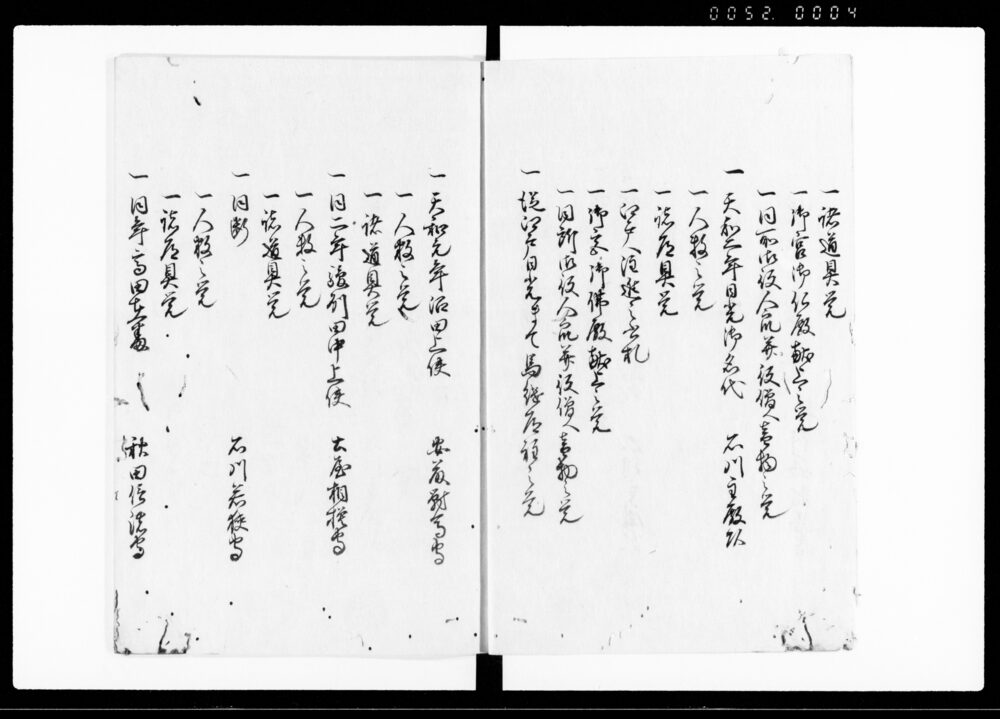 0052. 0004
一 諸道具覚
一 御宮御仏殿献上之覚
一 同所御役人衆并役僧人音物之覚
一 天和二年日光御名代 石川主殿頭
一 人数之覚
一 諸道具覚
一 江戸へ注進之書札
一 御宮御佛殿献上之覚
一 同所御役人衆并役僧人音物之覚
一 従江戸日光まて馬継道程之覚
一 天和元年沼田上使 安藤対馬守
一 人数之覚
一 諸道具覚
一 同二年駿州田中上使 土屋相模守
一 人数之覚
一 諸道具覚
一 同断 石川若狭守
一 人数之覚
一 諸道具覚
一 同年高田在番 秋田信濃守